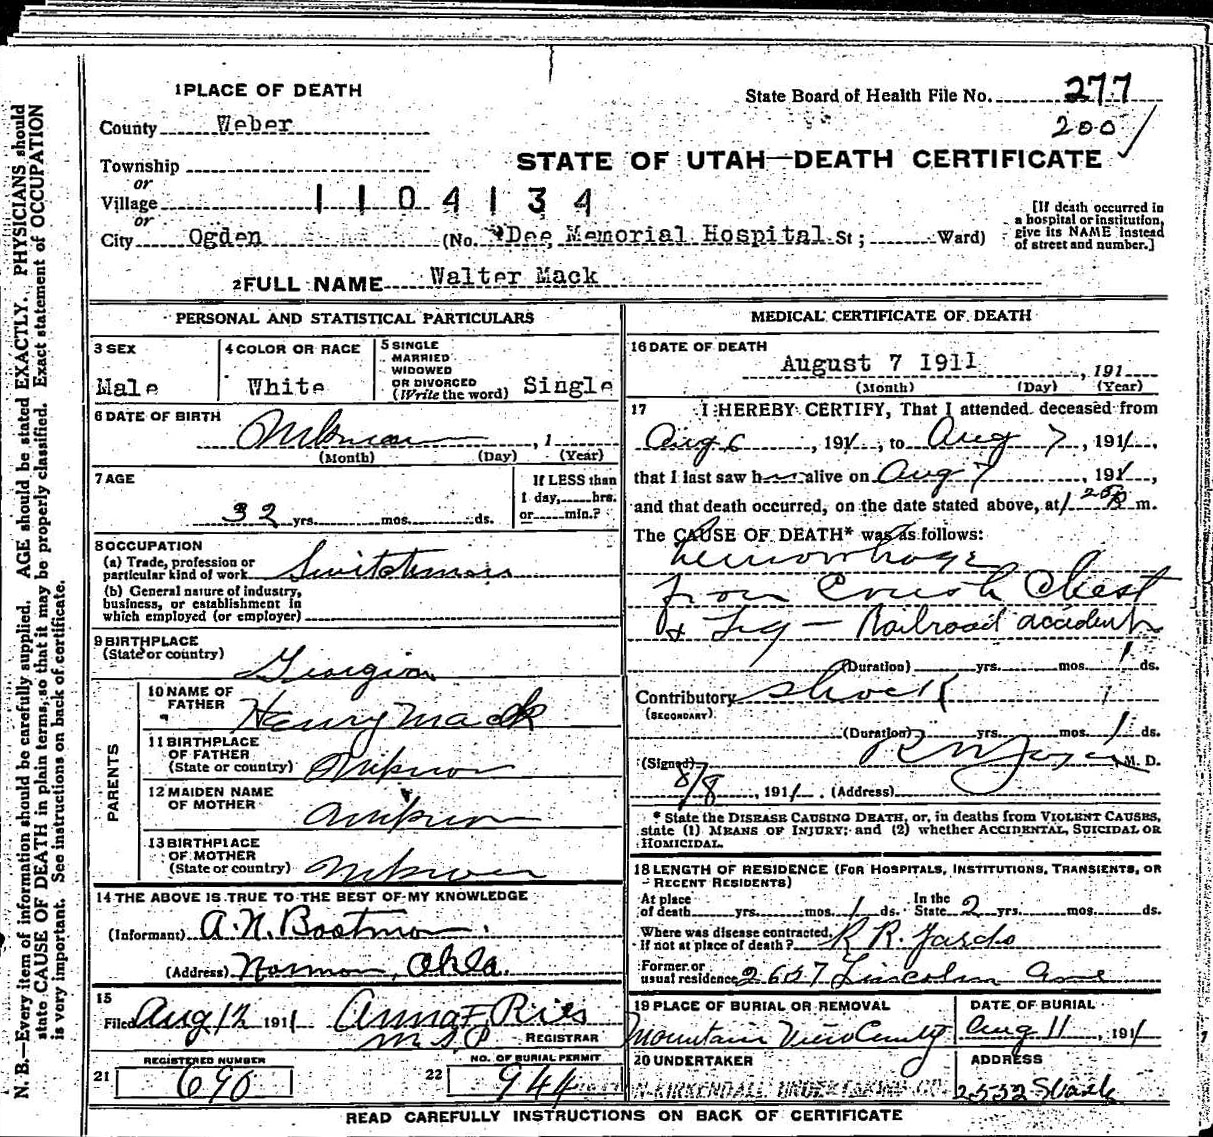 1 PLACE OF DEATH
State Board of Health File No. 277
County Weber
200
Township
STATE OF UTAH—DEATH CERTIFICATE
or
Village 1104134
or
City Ogden (No. Dee Memorial Hospital St; Ward)
[If death occurred in
a hospital or institution,
give its NAME instead
of street and number.]
2 FULL NAME Walter Mack
PERSONAL AND STATISTICAL PARTICULARS
3 SEX
Male
4 COLOR OR RACE
White
5 SINGLE
MARRIED
WIDOWED
OR DIVORCED
(Write the word) Single
6 DATE OF BIRTH
Unknown, 1
(Month) (Day) (Year)
7 AGE
32 yrs. mos. ds.
If LESS than
1 day, hrs.
or min.?
8 OCCUPATION
(a) Trade, profession or
particular kind of work Switchman
(b) General nature of industry,
business, or establishment in
which employed (or employer)
9 BIRTHPLACE
(State or country)
Georgia
PARENTS
10 NAME OF
FATHER Henry Mack
11 BIRTHPLACE
OF FATHER
(State or country) Unknown
12 MAIDEN NAME
OF MOTHER Unknown
13 BIRTHPLACE
OF MOTHER
(State or country) Unknown
14 THE ABOVE IS TRUE TO THE BEST OF MY KNOWLEDGE
(Informant) A. N. Boatman
(Address) Norman, Okla.
15
Filed Aug 12 1911 Anna F Ries
REGISTRAR
REGISTERED NUMBER
21 690
NO. OF BURIAL PERMIT
22 944
MEDICAL CERTIFICATE OF DEATH
16 DATE OF DEATH
August 7 1911, 191
(Month) (Day) (Year)
17 I HEREBY CERTIFY, That I attended deceased from
Aug 6, 1911, to Aug 7, 1911,
that I last saw h alive on Aug 7, 1911,
and that death occurred, on the date stated above, at m.
The CAUSE OF DEATH* was as follows:
hemorrhage
from Crush Chest
& Leg — Railroad accident
(Duration) yrs. mos. 1 ds.
Contributory Shock
(SECONDARY)
(Duration) yrs. mos. 1 ds.
(Signed) M. D.
8/8, 1911. (Address)
* State the DISEASE CAUSING DEATH, or, in deaths from VIOLENT CAUSES,
state (1) MEANS OF INJURY; and (2) whether ACCIDENTAL, SUICIDAL OR
HOMICIDAL.
18 LENGTH OF RESIDENCE (FOR HOSPITALS, INSTITUTIONS, TRANSIENTS, OR
RECENT RESIDENTS)
At place
of death yrs. mos. 1 ds. In the
State 2 yrs. mos. ds.
Where was disease contracted,
if not at place of death? R R. Yards
Former or
usual residence 2607 Lincoln Ave
19 PLACE OF BURIAL OR REMOVAL
Mountain View
DATE OF BURIAL
Aug 11, 1911
20 UNDERTAKER
KIRKENDALL UNDERTAKING CO
ADDRESS
2552 Wash
READ CAREFULLY INSTRUCTIONS ON BACK OF CERTIFICATE
N. B.—Every item of information should be carefully supplied. AGE should be stated EXACTLY. PHYSICIANS should
state CAUSE OF DEATH in plain terms, so that it may be properly classified. Exact statement of OCCUPATION
is very important. See instructions on back of certificate.